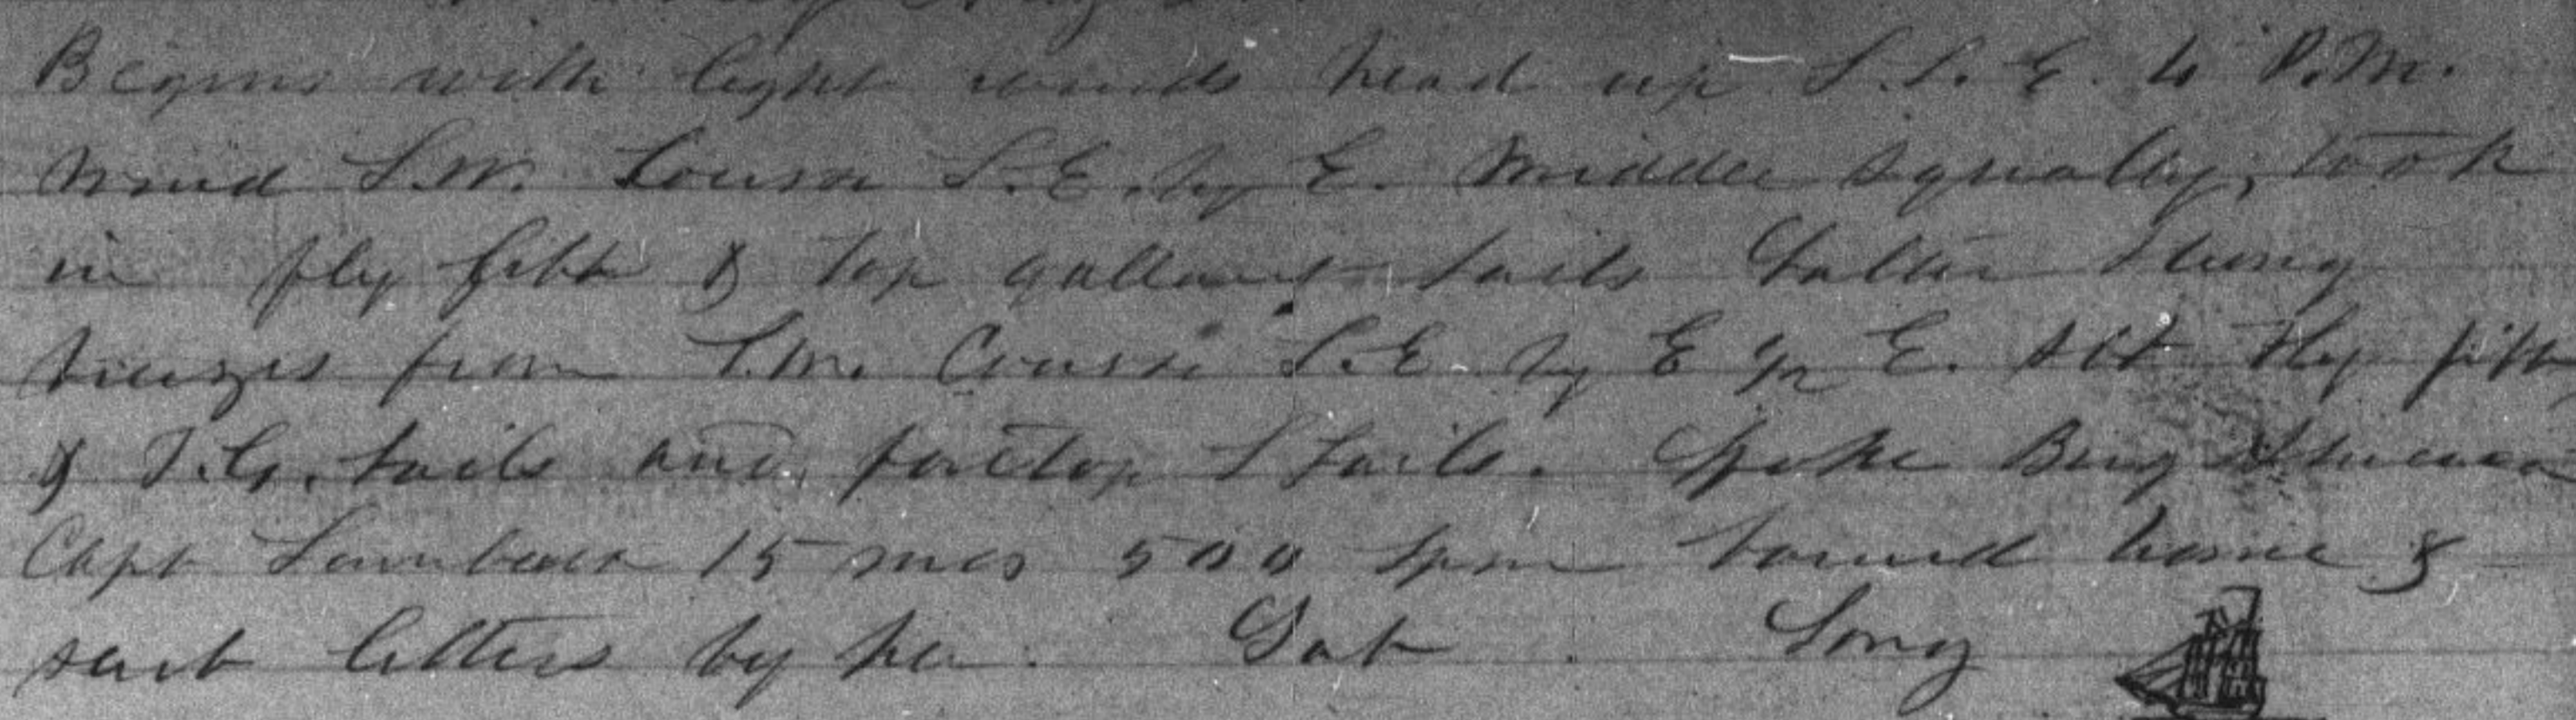 Begins with light winds head up S.S.E. 4 P.M.
wind S.W. Course S.E. by E. Middle squally, took
in fly jibb & top gallant sails Latter strong
breezes from S.W. Course S.E. by E ½ E. Set fly jibb
& T.G. sails and foretop S Sails. Spoke Brig
Capt 15 mos 500 spm bound home &
sent letters by her. Lat Long